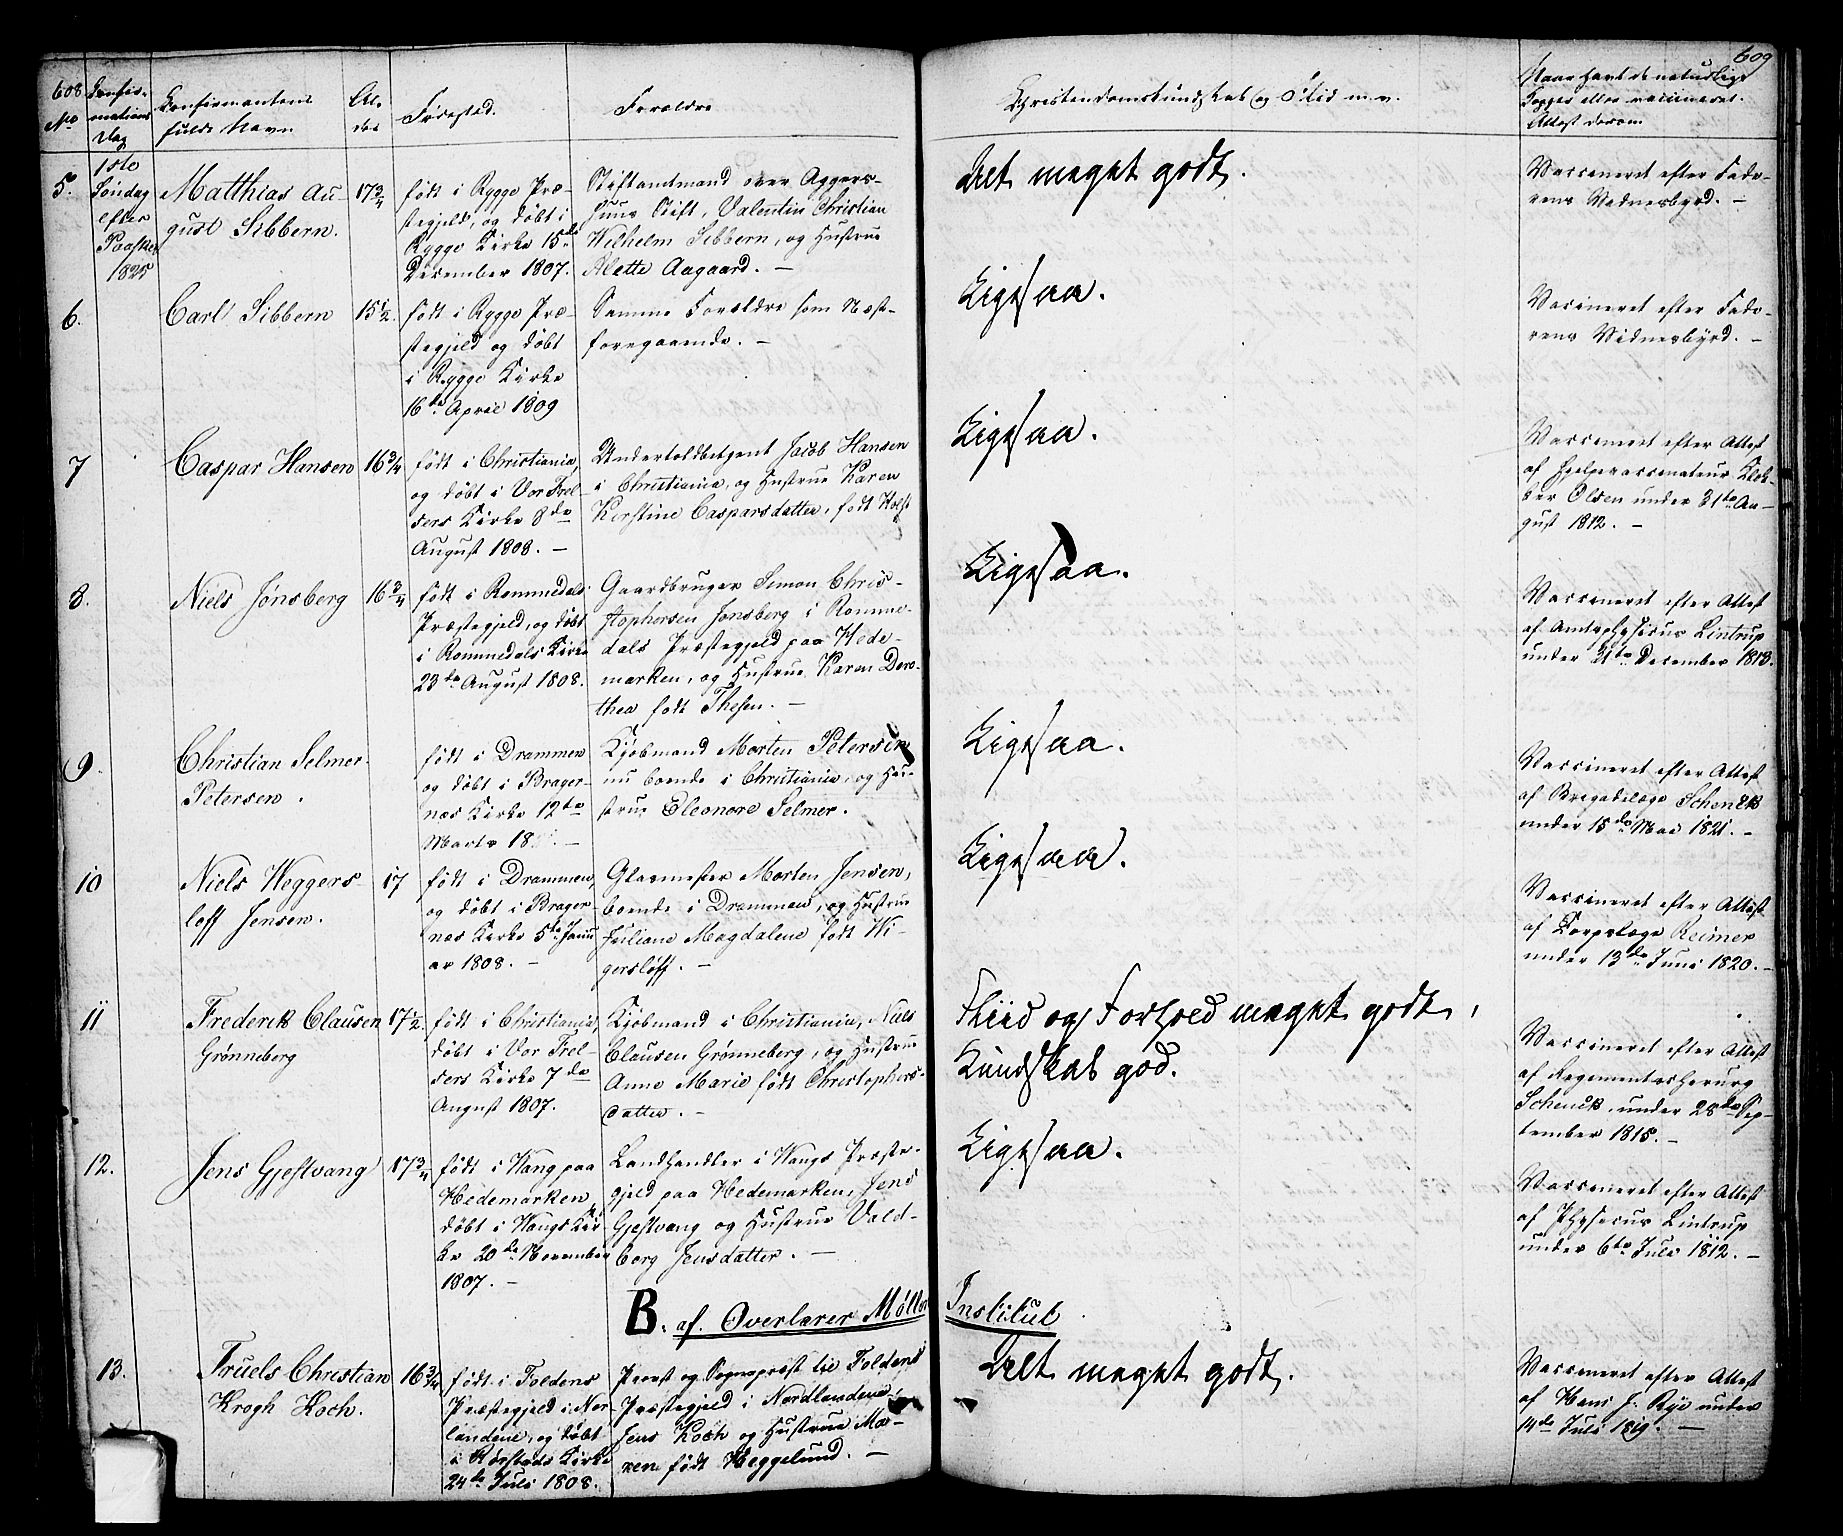 608
609
No
Confir-
mations
Dag
Confirmantens
fulde Navn
Al-
der
Fødested.
Forældre
Christendomskundskab og Flid m.v.
Naar havt de naturlige
Kopper eller vaccineret.
Attest derom
5.
1ste
Søndag
efter
Paaske
1825
Matthias Au-
gust Sibbern.
17 3/4
født i Rygge Præ-
stegjeld, og døbt i
Rygge Kirke 15de
December 1807.
Stiftamtmand over Aggers-
huus Stift, Valentin Christian
Wilhelm Sibbern, og Hustrue
Alette Aagaard. –
Alt meget godt.
Vaccineret efter Fade-
rens Vidnesbyrd. –
6.
Carl Sibbern
15 1/2.
født i Rygge Præ-
stegjeld og døbt
i Rygge Kirke
16de April 1809
Samme Forældre som Næst-
foregaaende. –
Ligesaa.
Vaccineret efter Fade-
rens Vidnesbyrd. –
7
Caspar Hansen
16 3/4
født i Christiania,
og døbt i Vor Frel-
sers Kirke 8de
August 1808. –
Undertoldbetjent Jacob Hansen
i Christiania, og Hustrue Karen
Kirstine Caspersdatter, født Holst
Ligesaa.
Vaccineret efter Attest
af Hjelpevaccinateur Klok-
ker Olsen under 31te Au-
gust 1812. –
8.
Niels Jønsberg
16 3/4
født i Rommedals
Præstegjeld, og døbt
i Rommedals Kirke
23de August 1808.
Gaardbruger Simon Chris-
stophersen Jønsberg i Romme-
dals Præstegjeld paa Hede-
marken, og Hustrue Karen Doro-
thea født Thesen. –
Ligesaa.
Vaccineret efter Attest
af Amtsphysicus Lintrup
under 31te December 1813.
9.
Christian Selmer
Petersen.
født i Drammen
og døbt i Brager-
næs Kirke 12te
Marts 18
Kjøbmand Morten Petersen
nu boende i Christiania, og Hu-
strue Eleonore Selmer.
Ligesaa.
Vaccineret efter Attest
af Brigadelæge Schenck
under 15de Mai 1821. –
10
Niels Weggers-
løff Jensen.
17
født i Drammen,
og døbt i Brager-
næs Kirke 5te Janu
ar 1808. –
Glarmester Morten Jensen,
boende i Drammen, og Hustrue
Juliane Magdalene født Wi-
gersløff. –
Ligesaa.
Vaccineret efter Attest
af Corpslæge Reimer
under 13de Juni 1820. –
11
Frederik Clausen
Grønneberg
17 1/2
født i Christiania,
døbt i Vor Frel-
sers Kirke 7de
August 1807.
Kjøbmand i Christiania, Niels
Clausen Grønneberg, og Hustrue
Anne Marie født Christophers-
datter. –
Fliid og Forhold meget godt,
Kundskab god.
Vaccineret efter Attest
af Regimentschirurg
Schenck, under 28de Sep-
tember 1815. –
12.
Jens Gjestvang
17 3/4
født i Wang paa
Hedemarken,
døbt i Wangs Kir-
ke 20de November
1807. –
Landhandler i Wangs Præste-
gjeld paa Hedemarken, Jens
Gjestvang og Hustrue Vald-
borg Jensdatter. –
Ligesaa.
Vaccineret efter Attest
af Physicus Lintrup
under 6te Juli 1812. –
B. af Overlærer Møllers Institut
13.
Truels Christian
Krogh Koch.
16 3/4
født i Foldens
Præstegjeld i Nor-
landene, og døbt
i Rørstads Kirke
24de Juli 1808.
Provst og Sognepræst til Foldens
Præstegjeld i Nordlandene,
Jens Koch og Hustrue Ma-
ren født Heggelund. –
Alt meget godt.
Vaccineret efter Attest
af Hans J. Rye under
14de Juli 1819. –